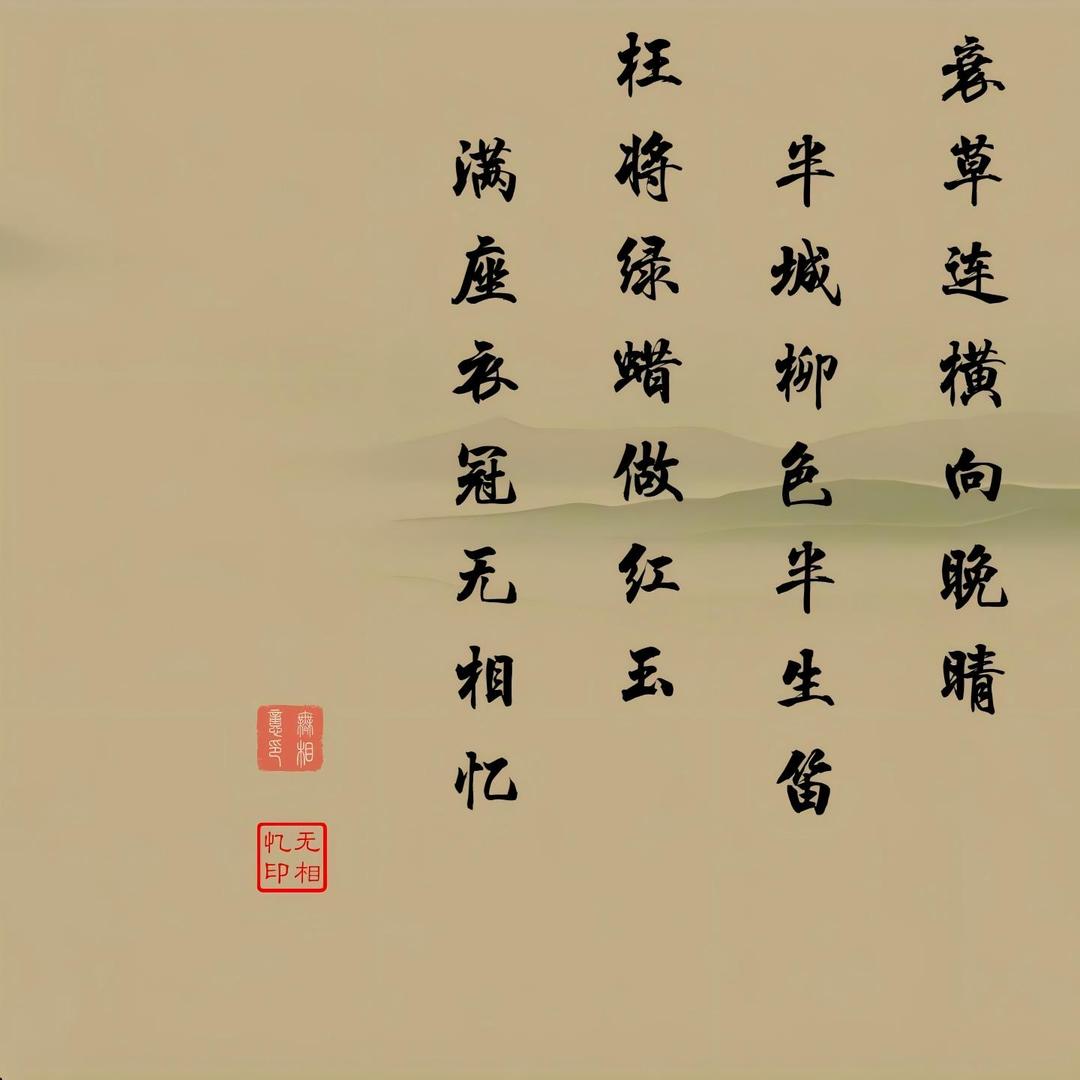 衰草连横向晚晴
半城柳色半生笛
枉将绿蜡做红玉
满座衣冠无相忆
無相
意印
无相
忆印